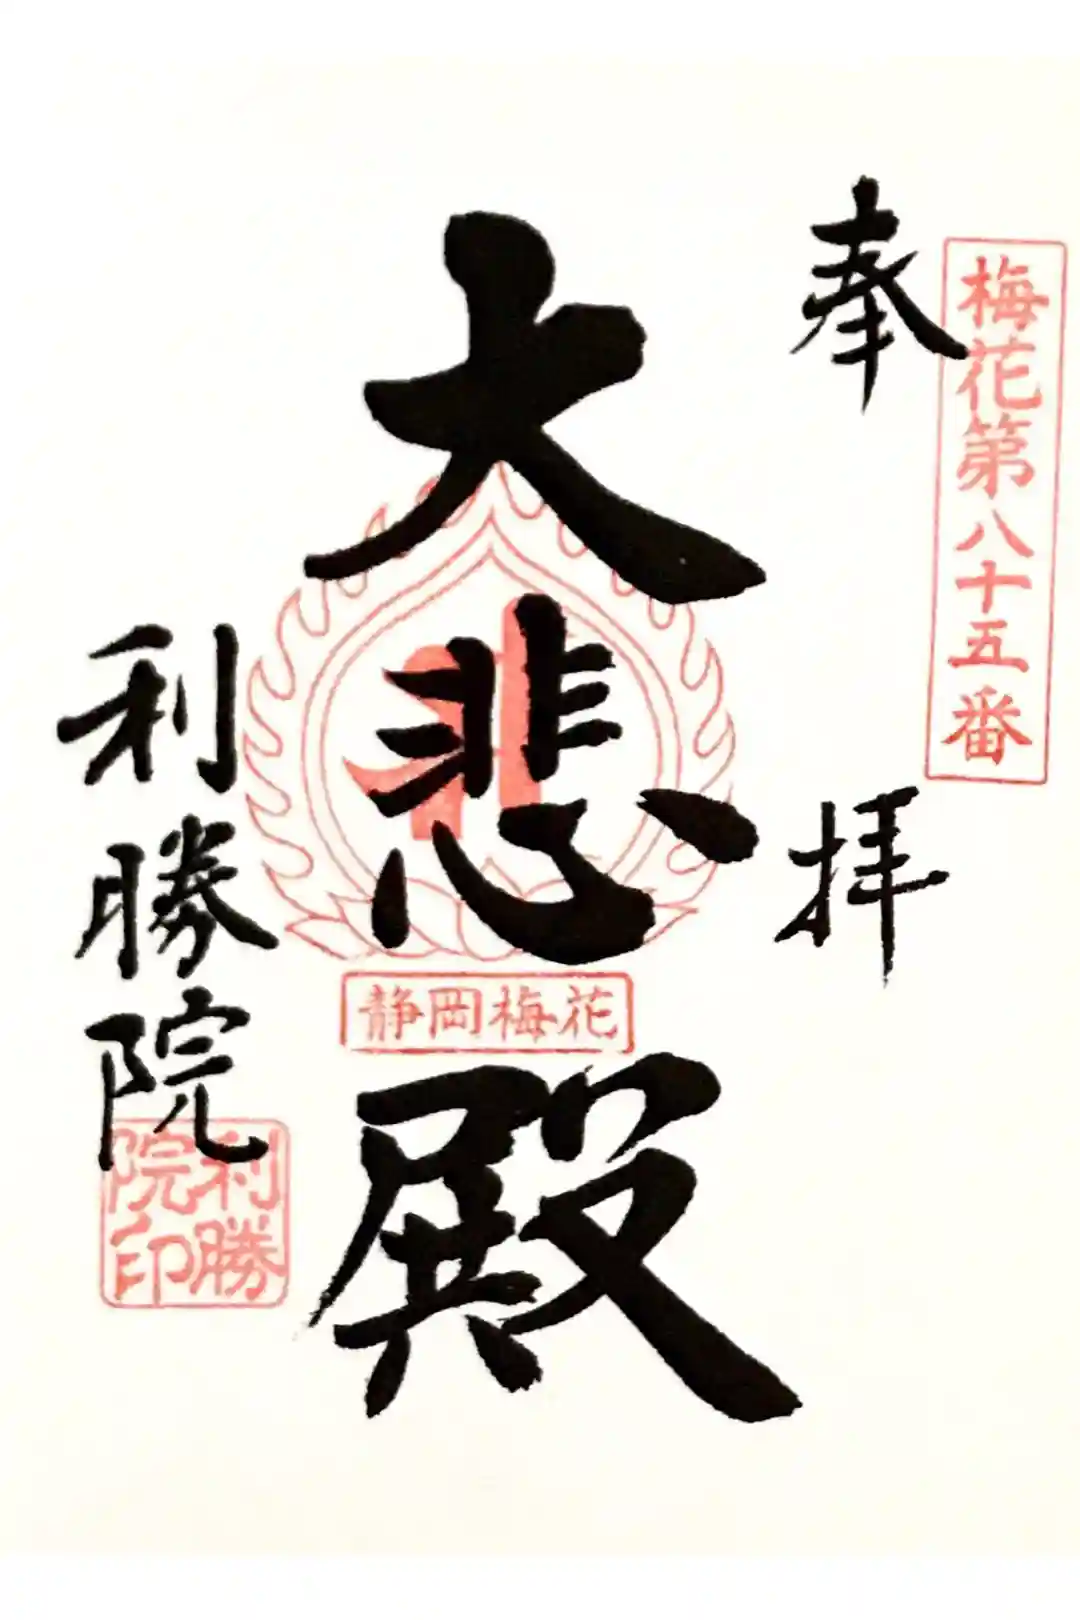 梅花第八十五番
奉拝
大悲殿
静岡梅花
利勝院
利勝
院印